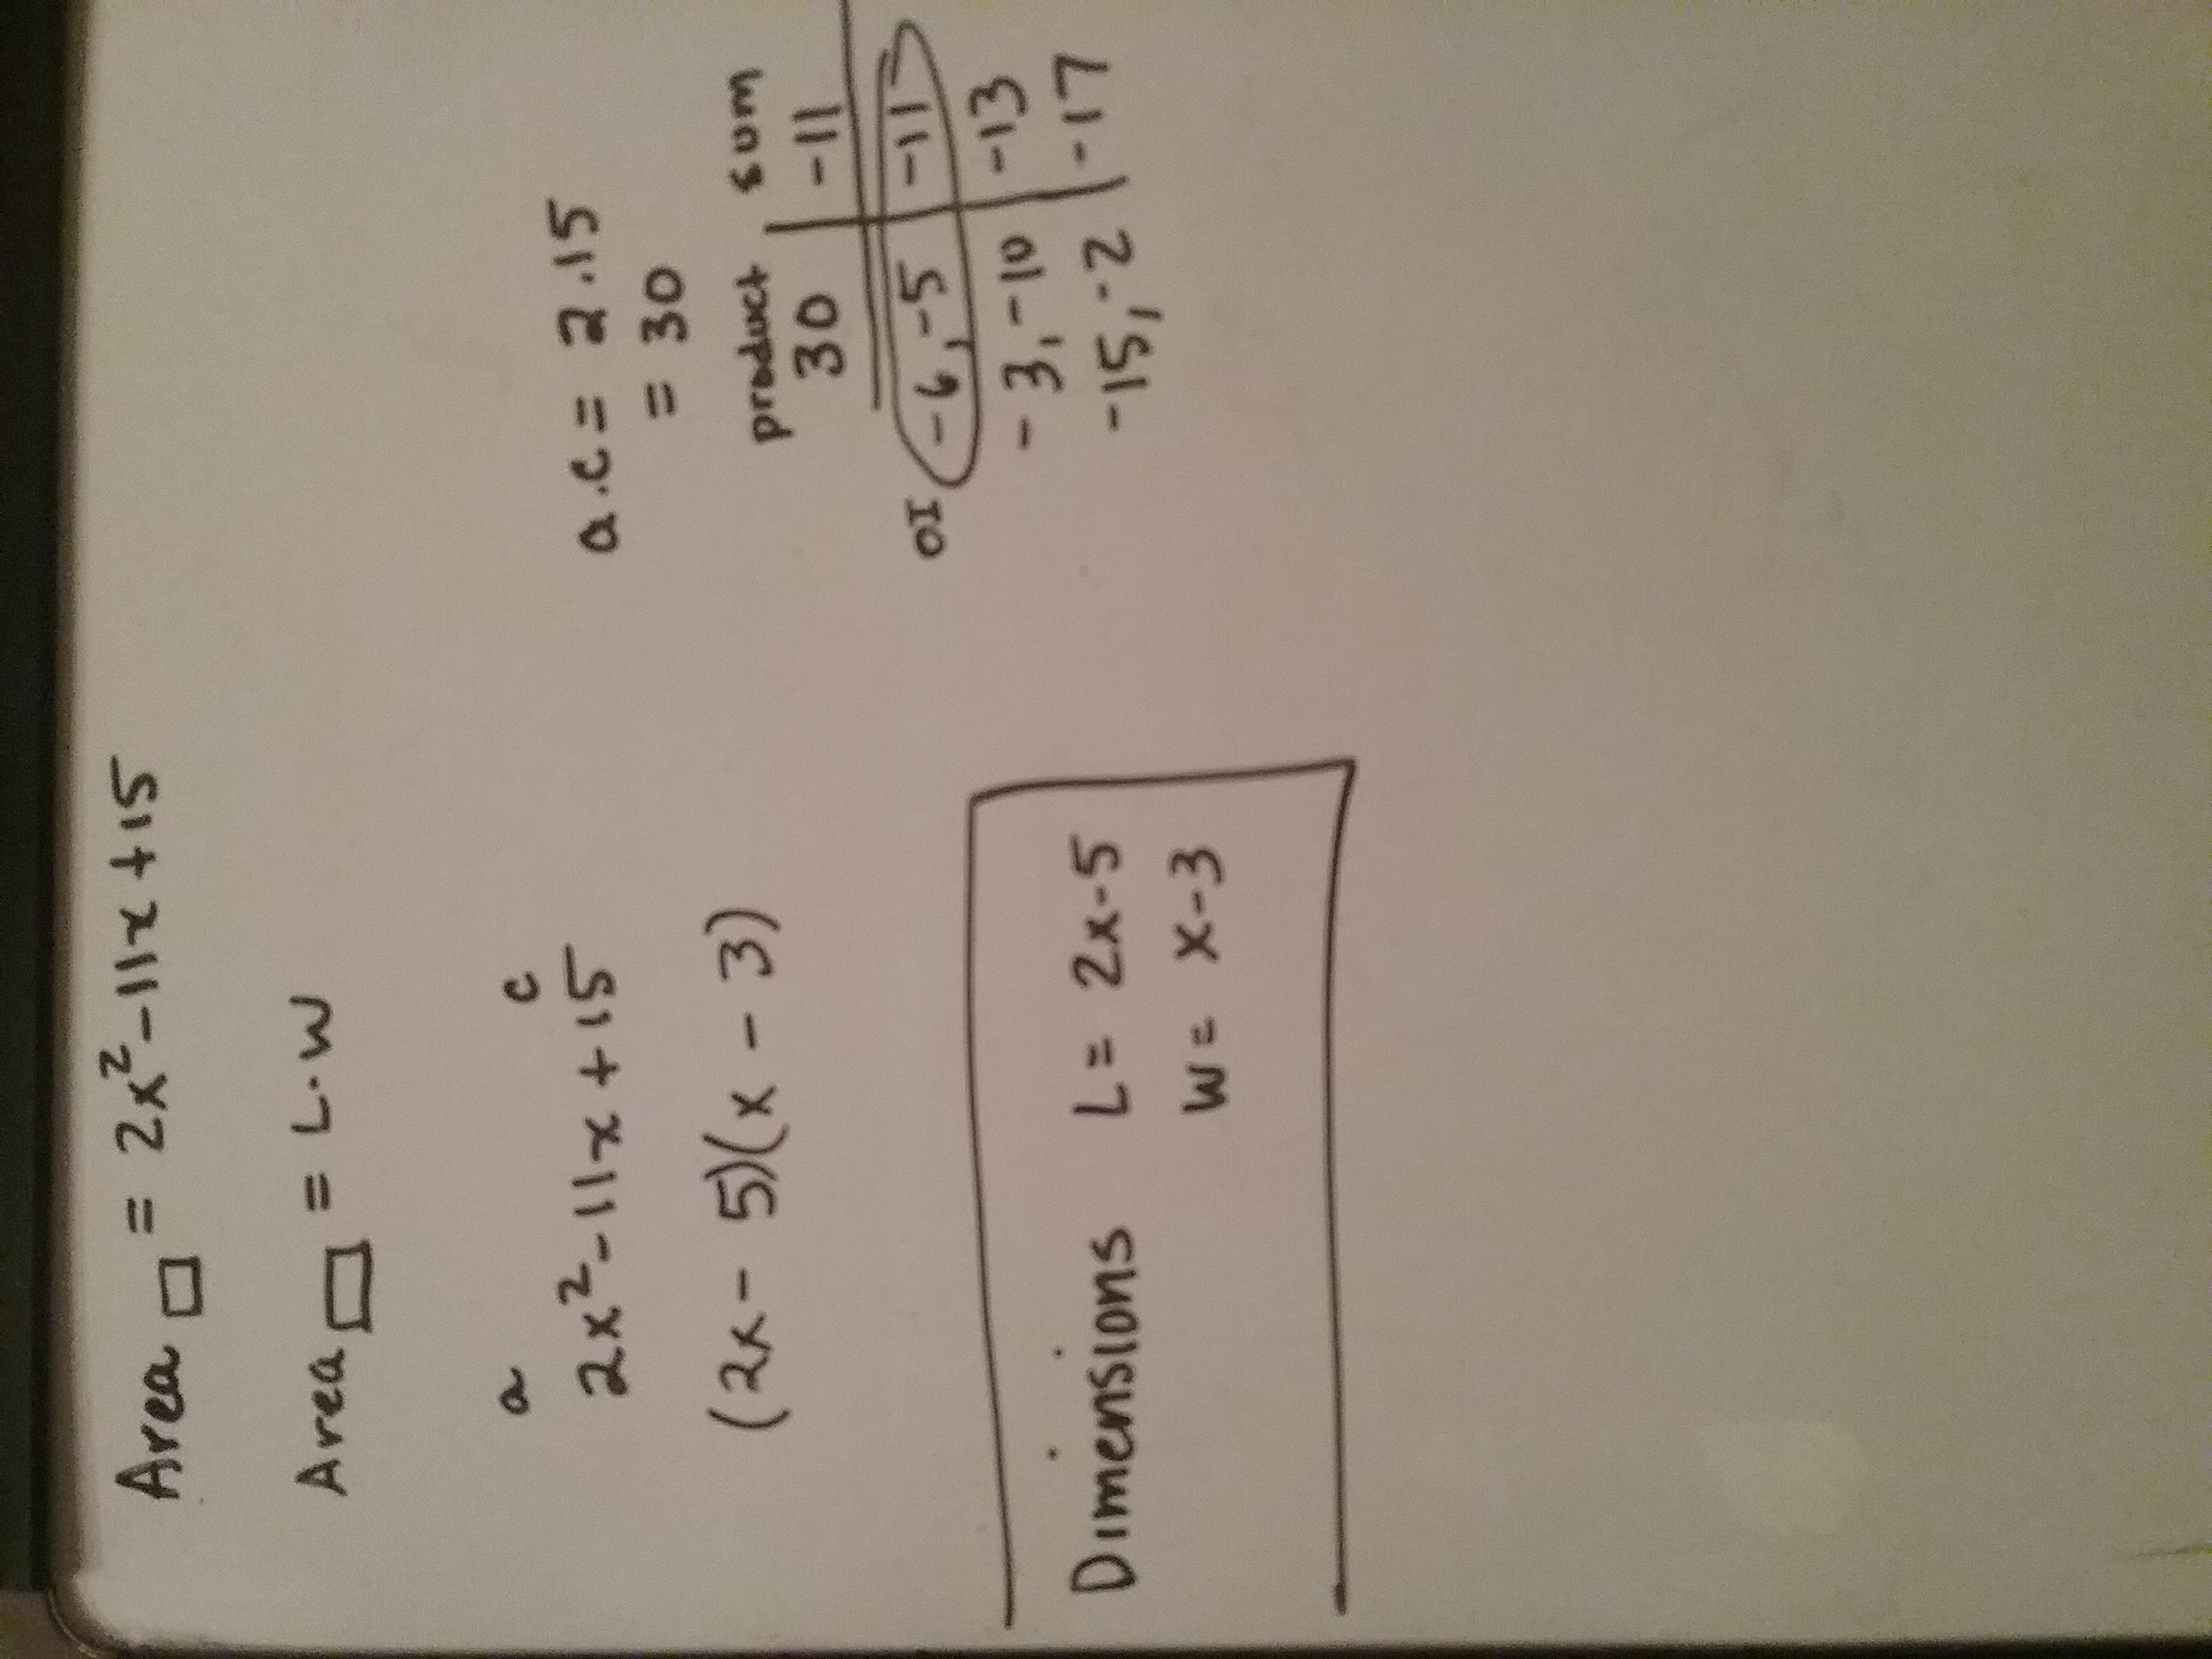 Area □ = 2x²-11x+15
Area ▭ = L·W
a c
2x²-11x+15
(2x-5)(x-3)
Dimensions L= 2x-5
W= x-3
a.c= 2.15
= 30
product sum
30 -11
OI -6,-5 -11
-3,-10 -13
-15,-2 -17